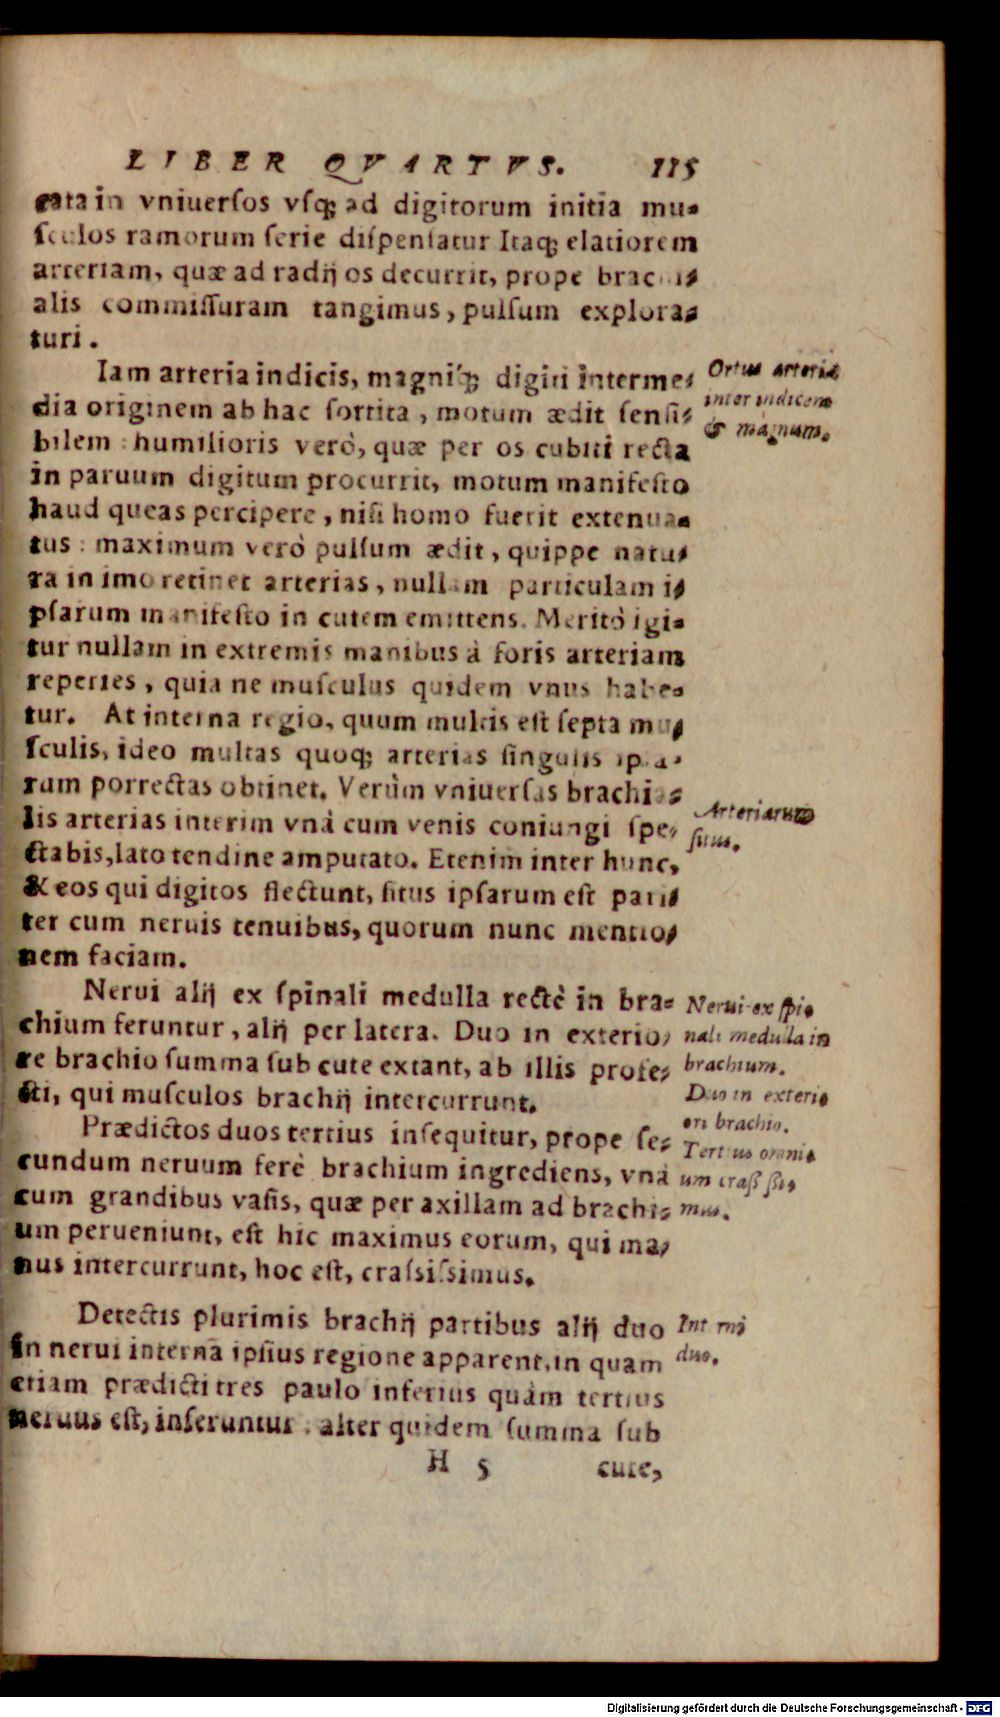 LIBER QVARTVS. 115
cata in vniuerſos vſq; ad digitorum initia mu-
ſculos ramorum ſerie diſpenſatur Itaq; elatiorem
arteriam, quæ ad radij os decurrit, prope brachi-
alis commiſſuram tangimus, pulſum explora-
turi.
Iam arteria indicis, magniq́; digiti interme-
dia originem ab hac ſortita, motum ædit ſenſi-
bilem: humilioris verò, quæ per os cubiti recta
in paruum digitum procurrit, motum manifeſto
haud queas percipere, niſi homo fuerit extenua-
tus: maximum verò pulſum ædit, quippe natu-
ra in imo retinet arterias, nullam particulam i-
pſarum manifeſto in cutem emittens. Meritò igi-
tur nullam in extremis manibus à foris arteriam
reperies, quia ne muſculus quidem vnus habe-
tur. At interna regio, quum multis eſt ſepta mu-
ſculis, ideo multas quoq; arterias ſingulis ipſa-
rum porrectas obtinet. Verùm vniuerſas brachia-
lis arterias interim vnà cum venis coniungi ſpe-
ctabis, lato tendine amputato. Etenim inter hunc,
& eos qui digitos flectunt, ſitus ipſarum eſt pari-
ter cum neruis tenuibus, quorum nunc mentio-
nem faciam.
Nerui alij ex ſpinali medulla rectè in bra-
chium feruntur, alij per latera. Duo in exterio-
re brachio ſumma ſub cute extant, ab illis profe-
cti, qui muſculos brachij intercurrunt.
Prædictos duos tertius inſequitur, prope ſe-
cundum neruum ferè brachium ingrediens, vnà
cum grandibus vaſis, quæ per axillam ad brachi-
um perueniunt, eſt hic maximus eorum, qui ma-
nus intercurrunt, hoc eſt, craſsiſsimus.
Detectis plurimis brachij partibus alij duo
in nerui internā ipſius regione apparent, in quam
etiam prædicti tres paulo inferius quàm tertius
neruus eſt, inſeruntur: alter quidem ſumma ſub
H 5 cute,
Ortus arteriæ
inter indicem
& magnum.
Arteriarum
ſitus.
Nerui ex ſpi-
nali medulla in
brachium.
Duo in exteri-
ori brachio.
Tertius omni-
um craſſiſſi-
mus.
Interni
duo.
Digitalisierung gefördert durch die Deutsche Forschungsgemeinschaft - DFG